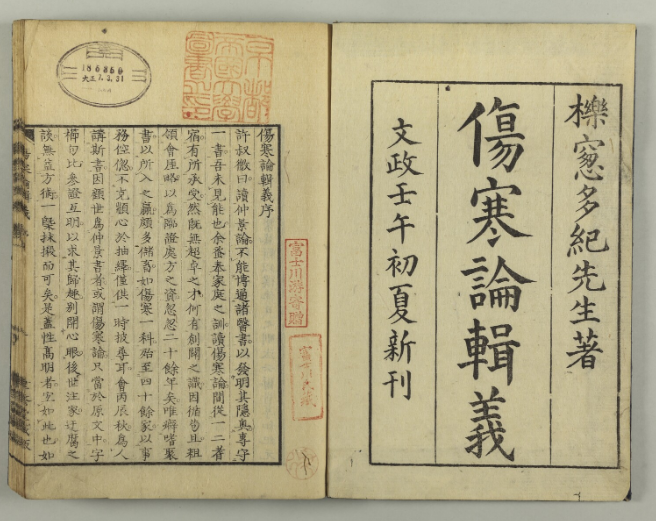 櫟窻多紀先生著
傷寒論輯義
文政壬午初夏新刊
富士川游寄贈
富士川氏藏
京都
帝國大學
圖書之印
186866
大正7.3.31
傷寒論輯義序
許叔微曰讀仲景論不能博通諸醫書以發明其隱奧專守
一書吾未見能也余蚤奉家庭之訓讀傷寒論間從一二耆
宿有所承受然既無超卓之才何有創闢之識因循苟且粗
領會厓略以為臨證處方之資忽忽二十餘年矣唯癖嗜聚
書以所入之贏頗多儲畜如傷寒一科殆至四十餘家以事
務倥偬不克顓心於抽繹僅供一時披尋耳會丙辰秋為人
講斯書因世為仲景書者或謂傷寒論只當於原文中字
櫛句比參證互明以求其歸趣別開心眼後世注家迂腐之
談無益方術一槩抹摋而可矣是蓋性高明者宜如此也如